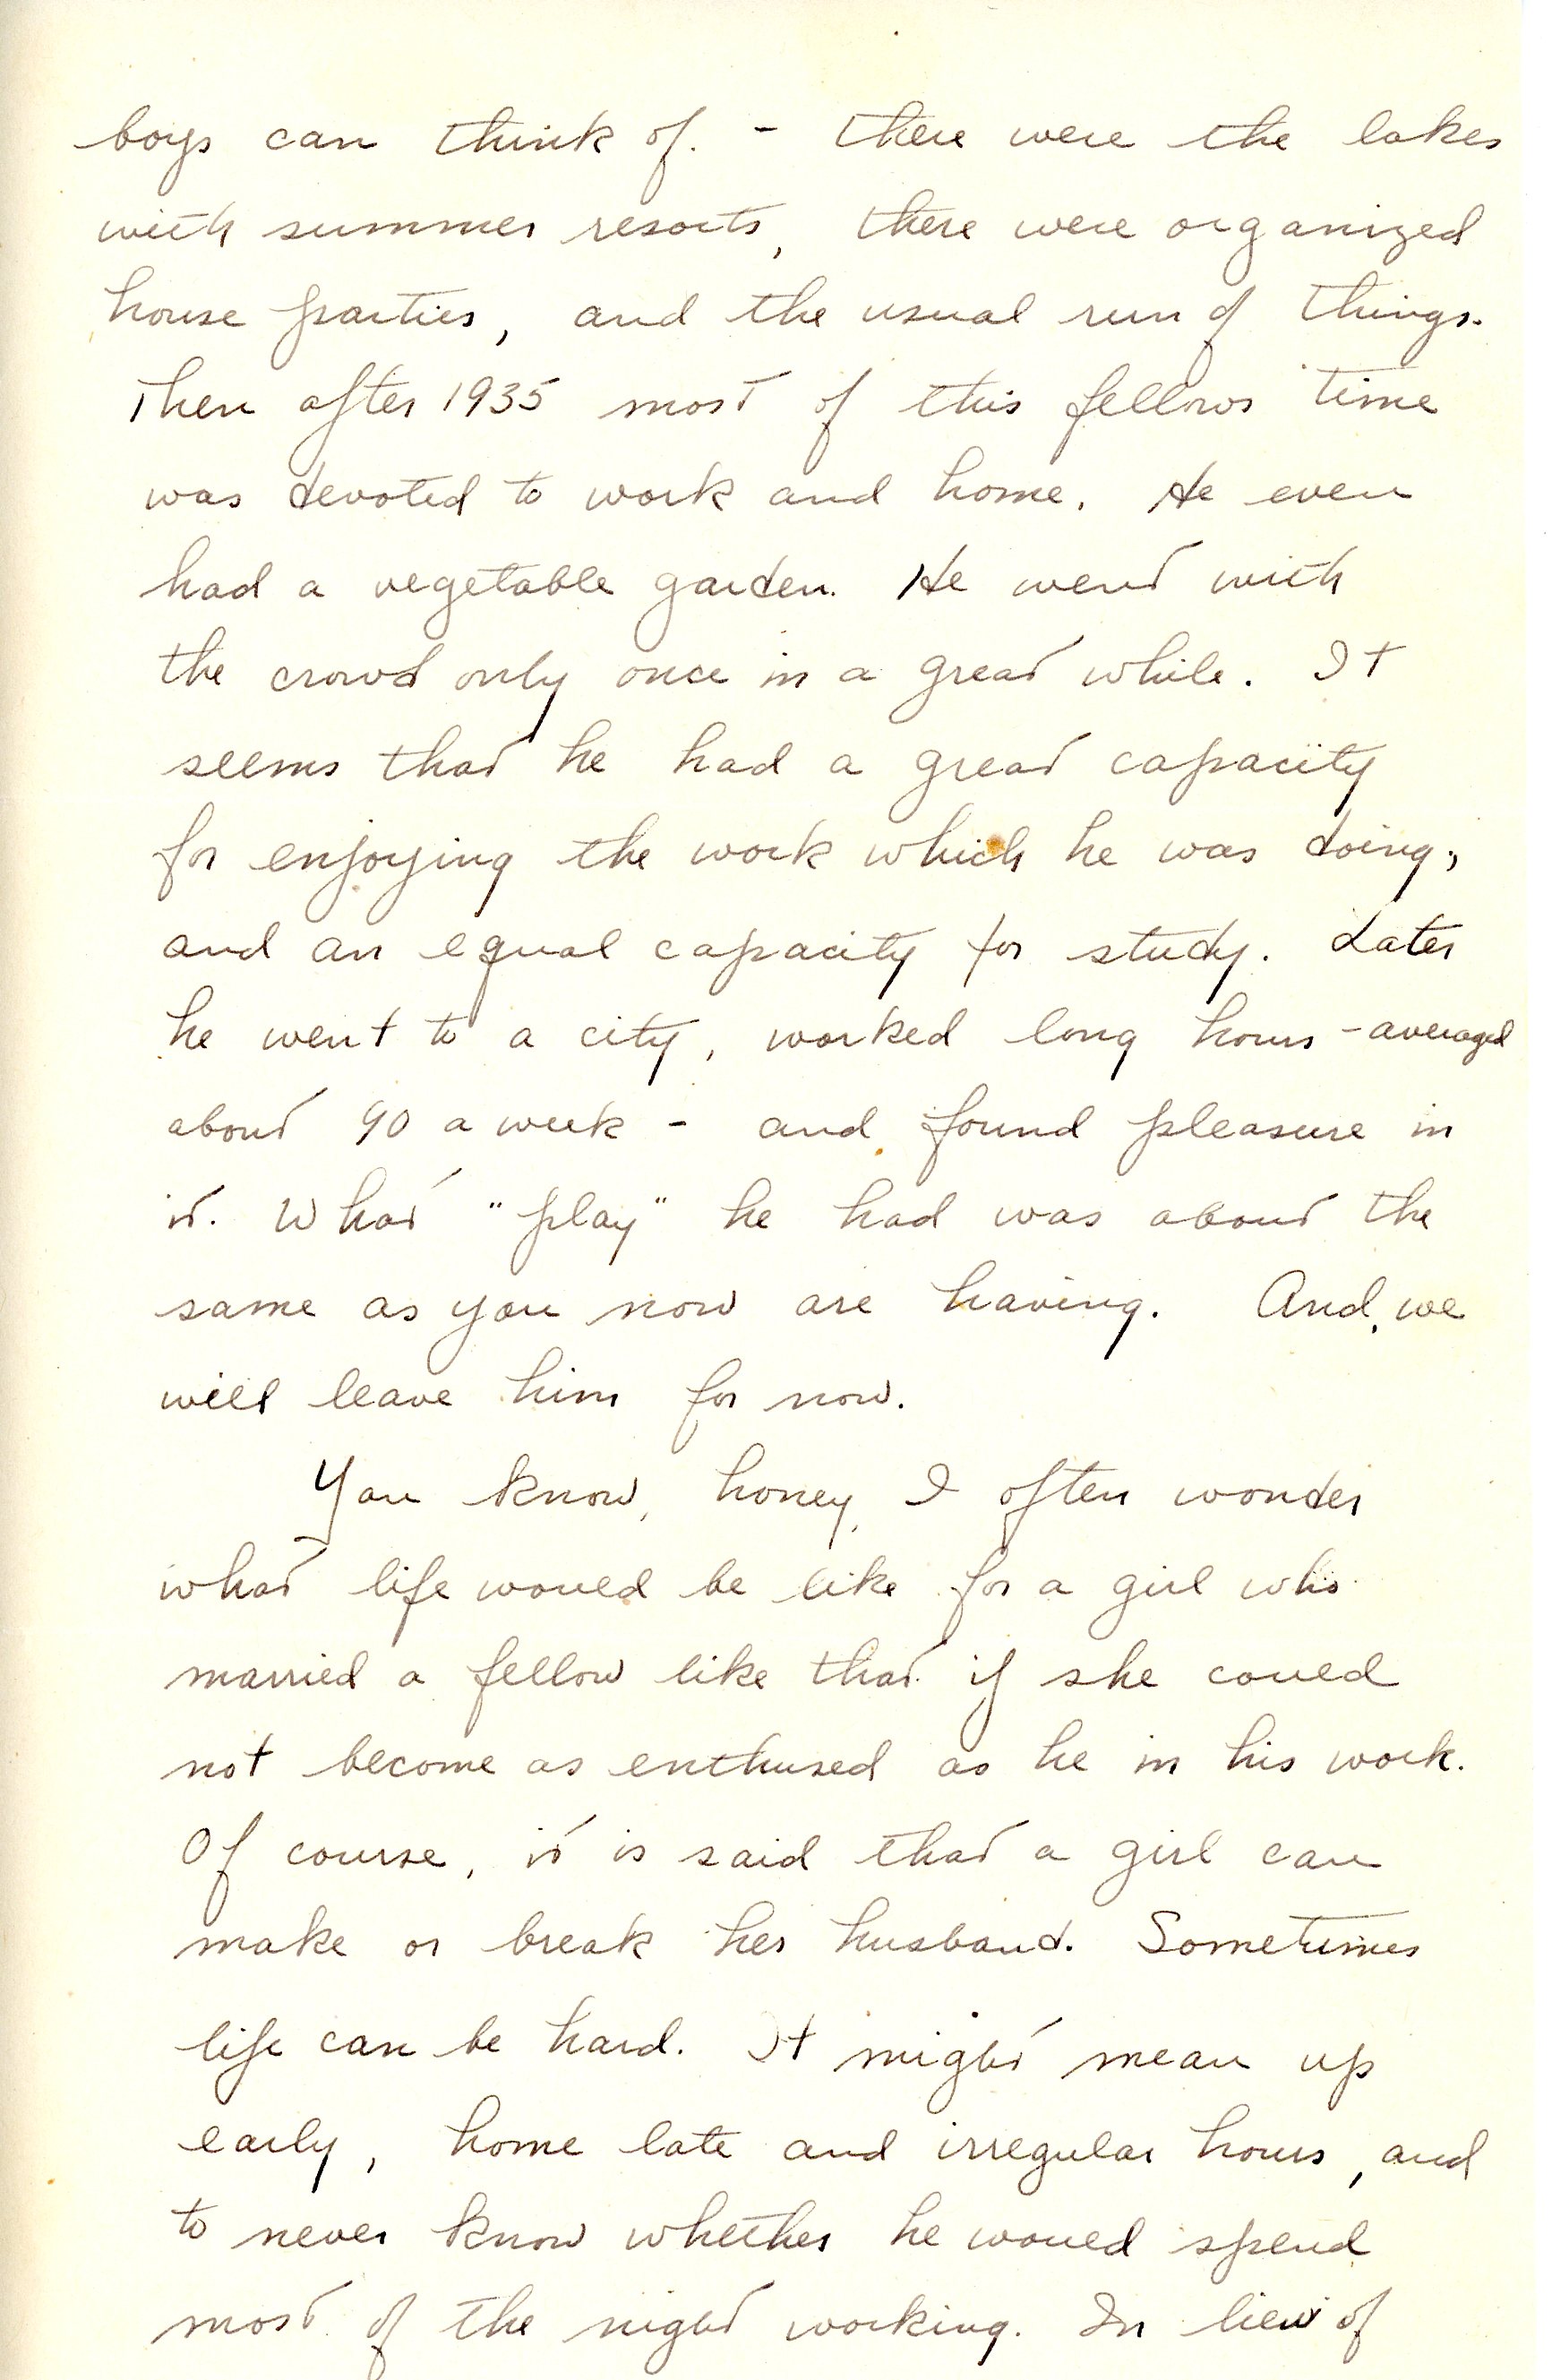 boys can think of. - there were the lakes
with summer resorts, there were organized
house parties, and the usual run of things.
Then after 1935 most of this fellows time
was devoted to work and home. He even
had a vegetable garden. He went with
the crowd only once in a great while. It
seems that he had a great capacity
for enjoying the work which he was doing,
and an equal capacity for study. Later
he went to a city, worked long hours - averaged
about 90 a week - and found pleasure in
it. What "play" he had was about the
same as you now are having. And, we
will leave him for now.
You know, honey, I often wonder
what life would be like for a girl who
married a fellow like that if she could
not become as enthused as he in his work.
Of course, it is said that a girl can
make or break her husband. Sometimes
life can be hard. It might mean up
early, home late and irregular hours, and
to never know whether he would spend
most of the night working. In lieu of